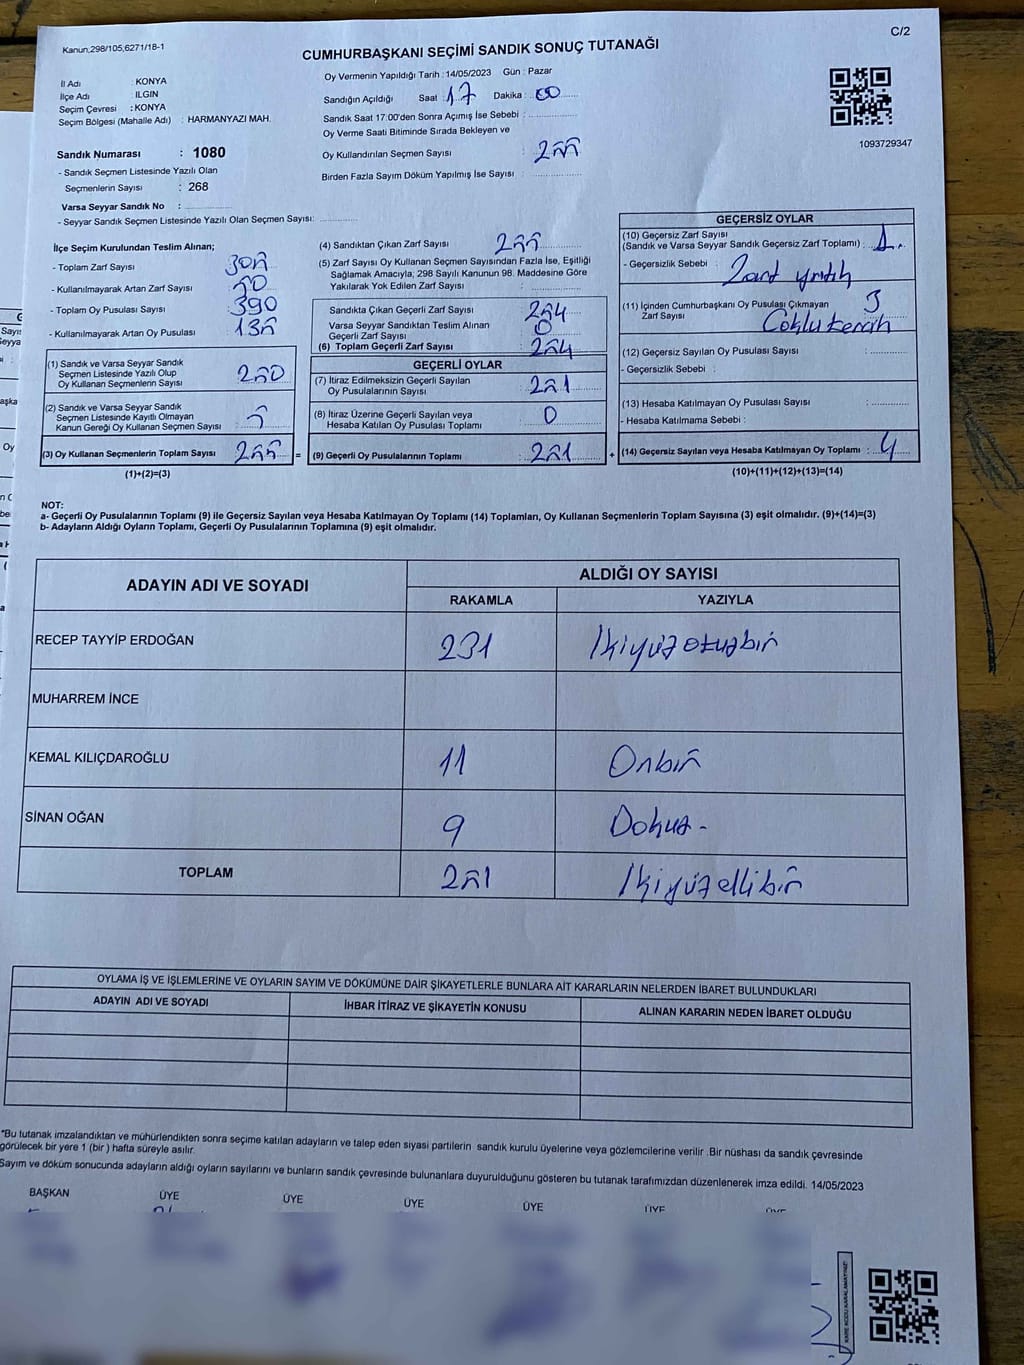 Kanun;298/105,6271/18-1
C/2
CUMHURBAŞKANI SEÇİMİ SANDIK SONUÇ TUTANAĞI
İl Adı : KONYA
İlçe Adı ILGIN
Seçim Çevresi : KONYA
Seçim Bölgesi (Mahalle Adı) : HARMANYAZI MAH.
Oy Vermenin Yapıldığı Tarih : 14/05/2023 Gün : Pazar
Sandığın Açıldığı Saat : 17 Dakika : 00
Sandık Saat 17:00'den Sonra Açımış İse Sebebi :
Oy Verme Saati Bitiminde Sırada Bekleyen ve
Oy Kullandırılan Seçmen Sayısı : 255
Birden Fazla Sayım Döküm Yapılmış İse Sayısı :
1093729347
Sandık Numarası : 1080
- Sandık Seçmen Listesinde Yazılı Olan
Seçmenlerin Sayısı : 268
Varsa Seyyar Sandık No :
- Seyyar Sandık Seçmen Listesinde Yazılı Olan Seçmen Sayısı:
İlçe Seçim Kurulundan Teslim Alınan;
- Toplam Zarf Sayısı 305
- Kullanılmayarak Artan Zarf Sayısı 50
- Toplam Oy Pusulası Sayısı 390
- Kullanılmayarak Artan Oy Pusulası 135
(1) Sandık ve Varsa Seyyar Sandık
Seçmen Listesinde Yazılı Olup
Oy Kullanan Seçmenlerin Sayısı : 250
(2) Sandık ve Varsa Seyyar Sandık
Seçmen Listesinde Kayıtlı Olmayan
Kanun Gereği Oy Kullanan Seçmen Sayısı : 5
(3) Oy Kullanan Seçmenlerin Toplam Sayısı : 255 =
(1)+(2)=(3)
(4) Sandıktan Çıkan Zarf Sayısı 255
(5) Zarf Sayısı Oy Kullanan Seçmen Sayısından Fazla İse, Eşitliği
Sağlamak Amacıyla; 298 Sayılı Kanunun 98. Maddesine Göre
Yakılarak Yok Edilen Zarf Sayısı :
Sandıkta Çıkan Geçerli Zarf Sayısı : 254
Varsa Seyyar Sandıktan Teslim Alınan
Geçerli Zarf Sayısı : 0
(6) Toplam Geçerli Zarf Sayısı : 254
GEÇERLİ OYLAR
(7) İtiraz Edilmeksizin Geçerli Sayılan
Oy Pusulalarının Sayısı : 251
(8) İtiraz Üzerine Geçerli Sayılan veya
Hesaba Katılan Oy Pusulası Toplamı : 0
(9) Geçerli Oy Pusulalarının Toplamı : 251 +
GEÇERSİZ OYLAR
(10) Geçersiz Zarf Sayısı
(Sandık ve Varsa Seyyar Sandık Geçersiz Zarf Toplamı) : 1.
- Geçersizlik Sebebi : Zarf yırtık
(11) İçinden Cumhurbaşkanı Oy Pusulası Çıkmayan
Zarf Sayısı 3
Çoklu tercih
(12) Geçersiz Sayılan Oy Pusulası Sayısı :
- Geçersizlik Sebebi :
(13) Hesaba Katılmayan Oy Pusulası Sayısı :
- Hesaba Katılmama Sebebi :
(14) Geçersiz Sayılan veya Hesaba Katılmayan Oy Toplamı : 4
(10)+(11)+(12)+(13)=(14)
NOT:
a- Geçerli Oy Pusulalarının Toplamı (9) ile Geçersiz Sayılan veya Hesaba Katılmayan Oy Toplamı (14) Toplamları, Oy Kullanan Seçmenlerin Toplam Sayısına (3) eşit olmalıdır. (9)+(14)=(3)
b- Adayların Aldığı Oyların Toplamı, Geçerli Oy Pusulalarının Toplamına (9) eşit olmalıdır.
ADAYIN ADI VE SOYADI
ALDIĞI OY SAYISI
RAKAMLA YAZIYLA
RECEP TAYYİP ERDOĞAN 231 İkiyüzotuzbir
MUHARREM İNCE
KEMAL KILIÇDAROĞLU 11 Onbir
SİNAN OĞAN 9 Dokuz -
TOPLAM 251 İkiyüzellibir
OYLAMA İŞ VE İŞLEMLERİNE VE OYLARIN SAYIM VE DÖKÜMÜNE DAİR ŞİKAYETLERLE BUNLARA AİT KARARLARIN NELERDEN İBARET BULUNDUKLARI
ADAYIN ADI VE SOYADI İHBAR İTİRAZ VE ŞİKAYETİN KONUSU ALINAN KARARIN NEDEN İBARET OLDUĞU
*Bu tutanak imzalandıktan ve mühürlendikten sonra seçime katılan adayların ve talep eden siyasi partilerin sandık kurulu üyelerine veya gözlemcilerine verilir .Bir nüshası da sandık çevresinde
görülecek bir yere 1 (bir ) hafta süreyle asılır.
Sayım ve döküm sonucunda adayların aldığı oyların sayılarını ve bunların sandık çevresinde bulunanlara duyurulduğunu gösteren bu tutanak tarafımızdan düzenlenerek imza edildi. 14/05/2023
BAŞKAN ÜYE ÜYE ÜYE ÜYE ÜYE ÜYE
KARE KODU KARALAMAYINIZ!